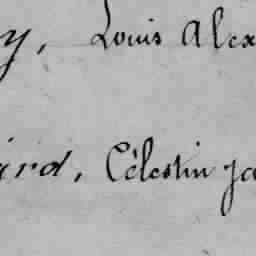 y, Louis Alex
ard, Célestin Ja